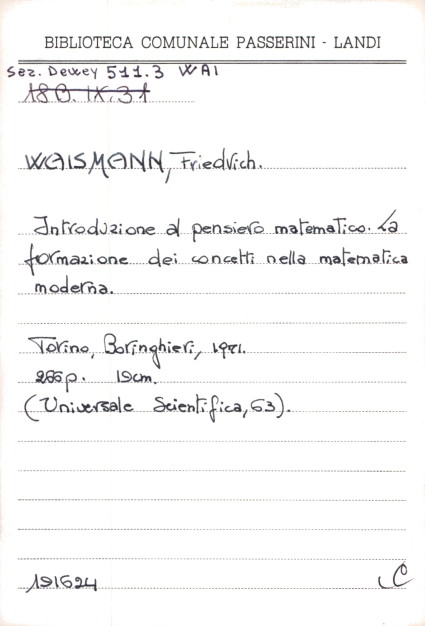 BIBLIOTECA COMUNALE PASSERINI - LANDI
Sez. Dewey 511.3 WAI
180.IX.31
WAISMANN, Friedrich.
Introduzione al pensiero matematico. La
formazione dei concetti nella matematica
moderna.
Torino, Boringhieri, 1971.
286p. 19cm.
(Universale Scientifica, 63).
191624 C